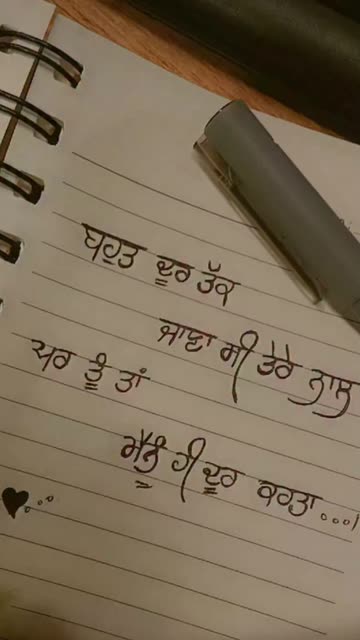 ਬਹੁਤ ਦੂਰ ਤੱਕ
ਜਾਣਾ ਸੀ ਤੇਰੇ ਨਾਲ
ਪਰ ਤੂੰ ਤਾਂ
ਮੈਨੂੰ ਹੀ ਦੂਰ ਕਰਤਾ...।